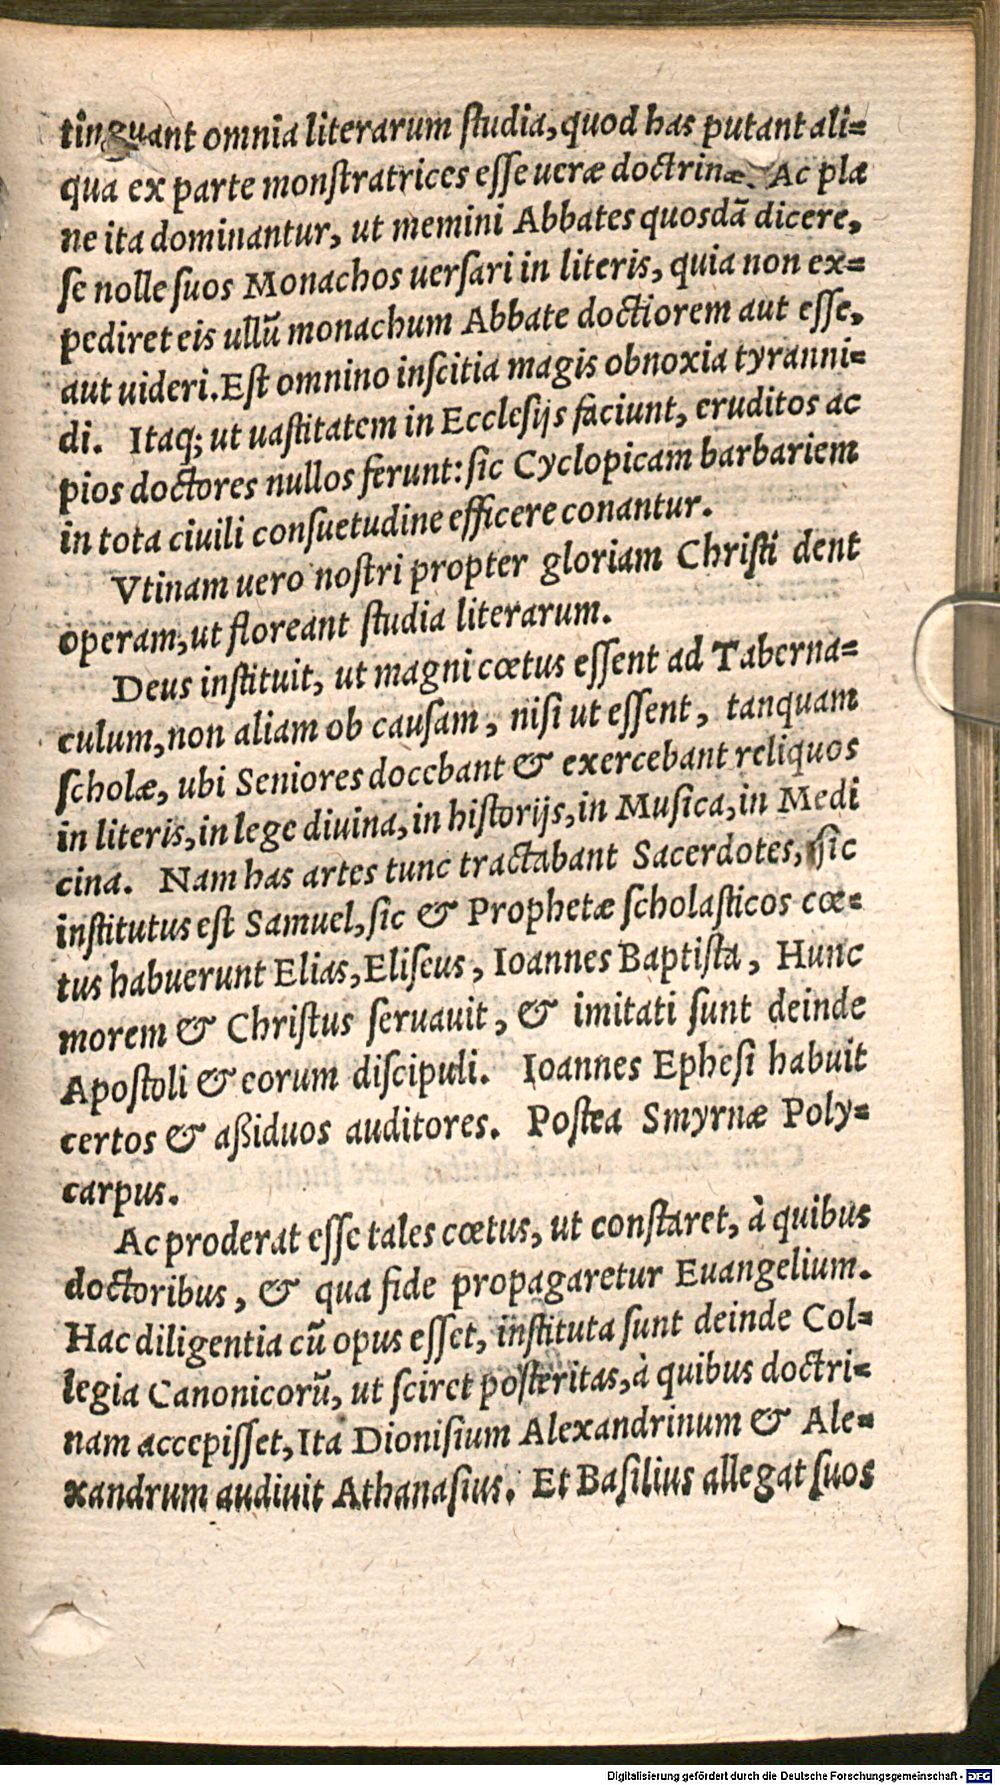 tinguant omnia literarum ſtudia, quod has putant ali=
qua ex parte monſtratrices eſſe ueræ doctrinæ. Ac plæ
ne ita dominantur, ut memini Abbates quosdā dicere,
ſe nolle ſuos Monachos uerſari in literis, quia non ex=
pediret eis ullū monachum Abbate doctiorem aut eſſe,
aut uideri. Eſt omnino inſcitia magis obnoxia tyranni=
di. Itaq; ut uaſtitatem in Eccleſijs faciunt, eruditos ac
pios doctores nullos ferunt: ſic Cyclopicam barbariem
in tota ciuili conſuetudine efficere conantur.
Vtinam uero noſtri propter gloriam Chriſti dent
operam, ut floreant ſtudia literarum.
Deus inſtituit, ut magni cœtus eſſent ad Taberna=
culum, non aliam ob cauſam, niſi ut eſſent, tanquam
ſcholæ, ubi Seniores docebant & exercebant reliquos
in literis, in lege diuina, in hiſtorijs, in Muſica, in Medi
cina. Nam has artes tunc tractabant Sacerdotes, ſic
inſtitutus eſt Samuel, ſic & Prophetæ ſcholaſticos cœ=
tus habuerunt Elias, Eliſeus, Ioannes Baptiſta, Hunc
morem & Chriſtus ſeruauit, & imitati ſunt deinde
Apoſtoli & eorum diſcipuli. Ioannes Epheſi habuit
certos & aßiduos auditores. Poſtea Smyrnæ Poly=
carpus.
Ac proderat eſſe tales cœtus, ut conſtaret, à quibus
doctoribus, & qua fide propagaretur Euangelium.
Hac diligentia cū opus eſſet, inſtituta ſunt deinde Col=
legia Canonicorū, ut ſciret poſteritas, à quibus doctri=
nam accepiſſet, Ita Dioniſium Alexandrinum & Ale=
xandrum audiuit Athanaſius. Et Baſilius allegat ſuos
Digitalisierung gefördert durch die Deutsche Forschungsgemeinschaft - DFG